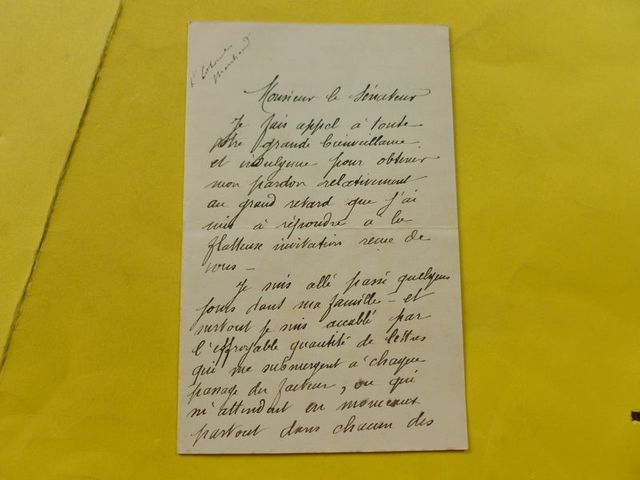 Lt Colonel
Marchand
Monsieur le Sénateur
Je fais appel à toute
votre grande bienveillance
et indulgence pour obtenir
mon pardon relativement
au grand retard que j'ai
mis à répondre à la
flatteuse invitation reçue de
vous —
Je suis allé passé quelques
jours dans ma famille — et
surtout je suis accablé par
l'effroyable quantité de lettres
qui me submergent à chaque
passage du facteur, ou qui
m'attendent en monceaux
partout dans chacun des